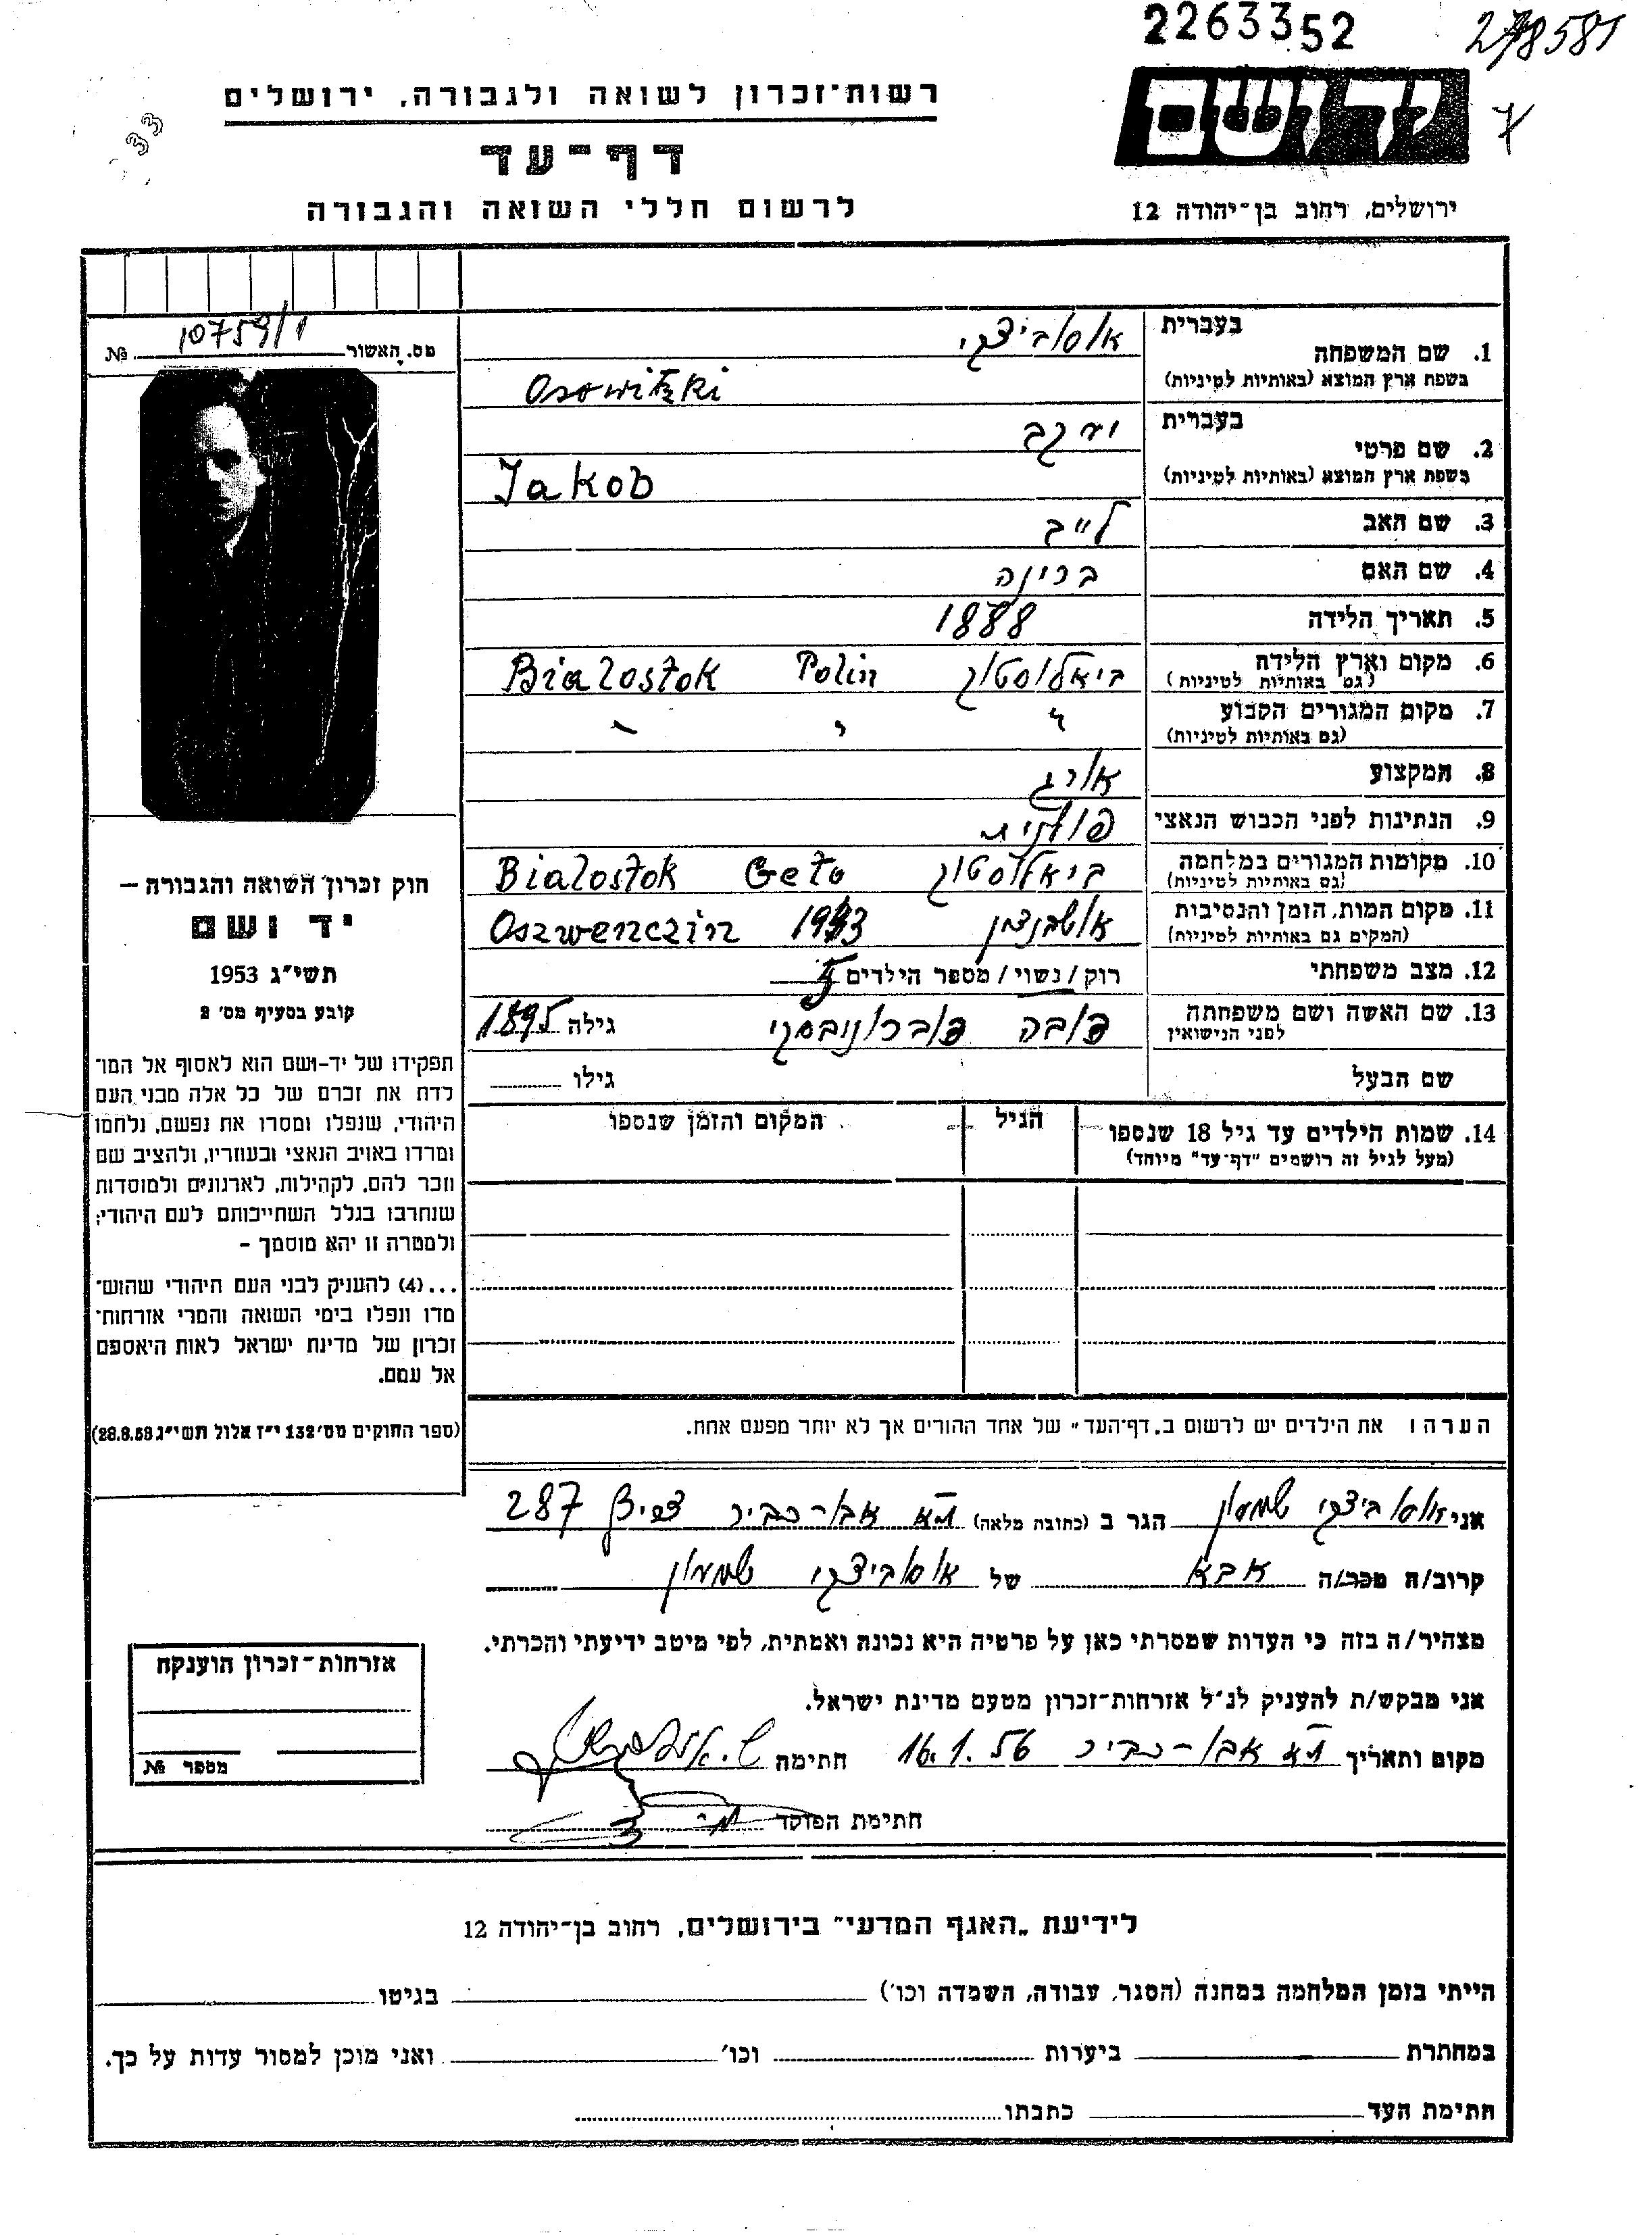 2263352
278581
רשות־זכרון לשואה ולגבורה, ירושלים
יד ושם
דף־עד
לרשום חללי השואה והגבורה
ירושלים, רחוב בן־יהודה 12
מס. האשור 10759/1 №
בעברית
1. שם המשפחה אוסוביצקי
בשפת ארץ המוצא (באותיות לטיניות) Osowitzki
בעברית
2. שם פרטי יעקב
בשפת ארץ המוצא (באותיות לטיניות) Jakob
3. שם האב לייב
4. שם האם
5. תאריך הלידה 1888
6. מקום וארץ הלידה ביאלוסטוק Polin Bialostok
(גם באותיות לטיניות)
7. מקום המגורים הקבוע " " "
(גם באותיות לטיניות)
8. המקצוע אורג
9. הנתינות לפני הכבוש הנאצי פולנית
10. מקומות המגורים במלחמה ביאלוסטוק Geto Bialostok
(גם באותיות לטיניות)
11. מקום המות, הזמן והנסיבות 1943 Oszwenczin
(המקום גם באותיות לטיניות)
12. מצב משפחתי רוק / נשוי / מספר הילדים
13. שם האשה ושם משפחתה גילה 1895
לפני הנישואין
שם הבעל גילו
14. שמות הילדים עד גיל 18 שנספו הגיל המקום והזמן שנספו
(מעל לגיל זה רושמים "דף־עד" מיוחד)
חוק זכרון השואה והגבורה –
יד ושם
תשי"ג 1953
קובע בסעיף מס' 2
תפקידו של יד-ושם הוא לאסוף אל המו־
לדת את זכרם של כל אלה מבני העם
היהודי, שנפלו ומסרו את נפשם, נלחמו
ומרדו באויב הנאצי ובעוזריו, ולהציב שם
וזכר להם, לקהילות, לארגונים ולמוסדות
שנחרבו בגלל השתייכותם לעם היהודי;
ולמטרה זו יהא מוסמך –
...(4) להעניק לבני העם היהודי שהוש־
מדו ונפלו בימי השואה והמרי אזרחות־
זכרון של מדינת ישראל לאות היאספם
אל עמם.
(ספר החוקים מס' 132 י"ז אלול תשי"ג 28.8.53)
הערה: את הילדים יש לרשום ב„דף־העד" של אחד ההורים אך לא יותר מפעם אחת.
אני אוסוביצקי שמעון הגר ב (כתובת מלאה) ת"א אבו-כביר צריף 287
קרוב/ה מכר/ה אבא של אוסוביצקי שמעון
מצהיר/ה בזה כי העדות שמסרתי כאן על פרטיה היא נכונה ואמתית, לפי מיטב ידיעתי והכרתי.
אני מבקש/ת להעניק לנ"ל אזרחות־זכרון מטעם מדינת ישראל.
מקום ותאריך ת"א אבו-כביר 16.1.56 חתימה
חתימת הפוקד
אזרחות־זכרון הוענקה
מספר №
לידיעת „האגף המדעי" בירושלים, רחוב בן־יהודה 12
הייתי בזמן המלחמה במחנה (הסגר, עבודה, השמדה וכו') בגיטו
במחתרת ביערות וכו' ואני מוכן למסור עדות על כך.
חתימת העד כתבתו